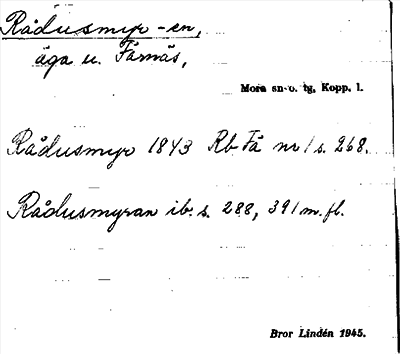 Rådusmyr -en,
äga u. Färnäs,
Mora sn o. tg, Kopp. l.
Rådusmyr 1843 Rb Fä nr 1 s. 268.
Rådusmyran ib. s. 288, 391 m. fl.
Bror Lindén 1945.